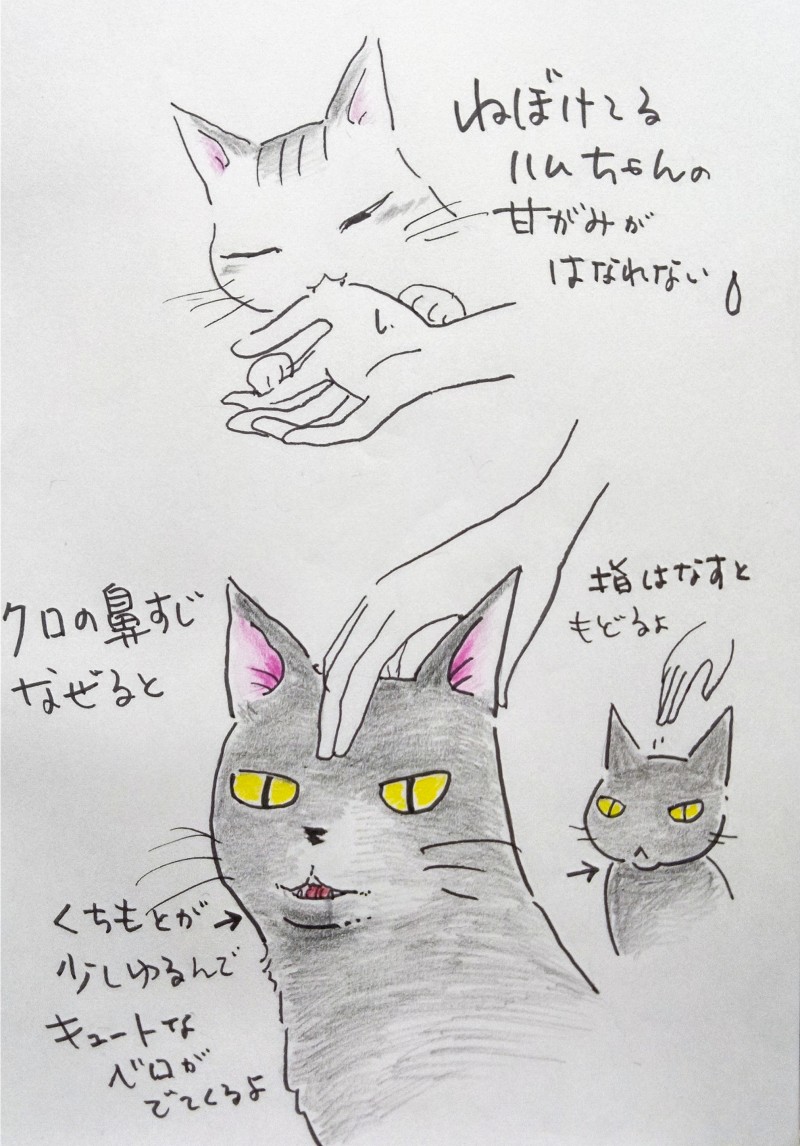 ねぼけてる
ハムちゃんの
甘がみが
はなれない
クロの鼻すじ
なぜると
指はなすと
もどるよ
くちもとが
少しゆるんで
キュートな
ベロが
でてくるよ